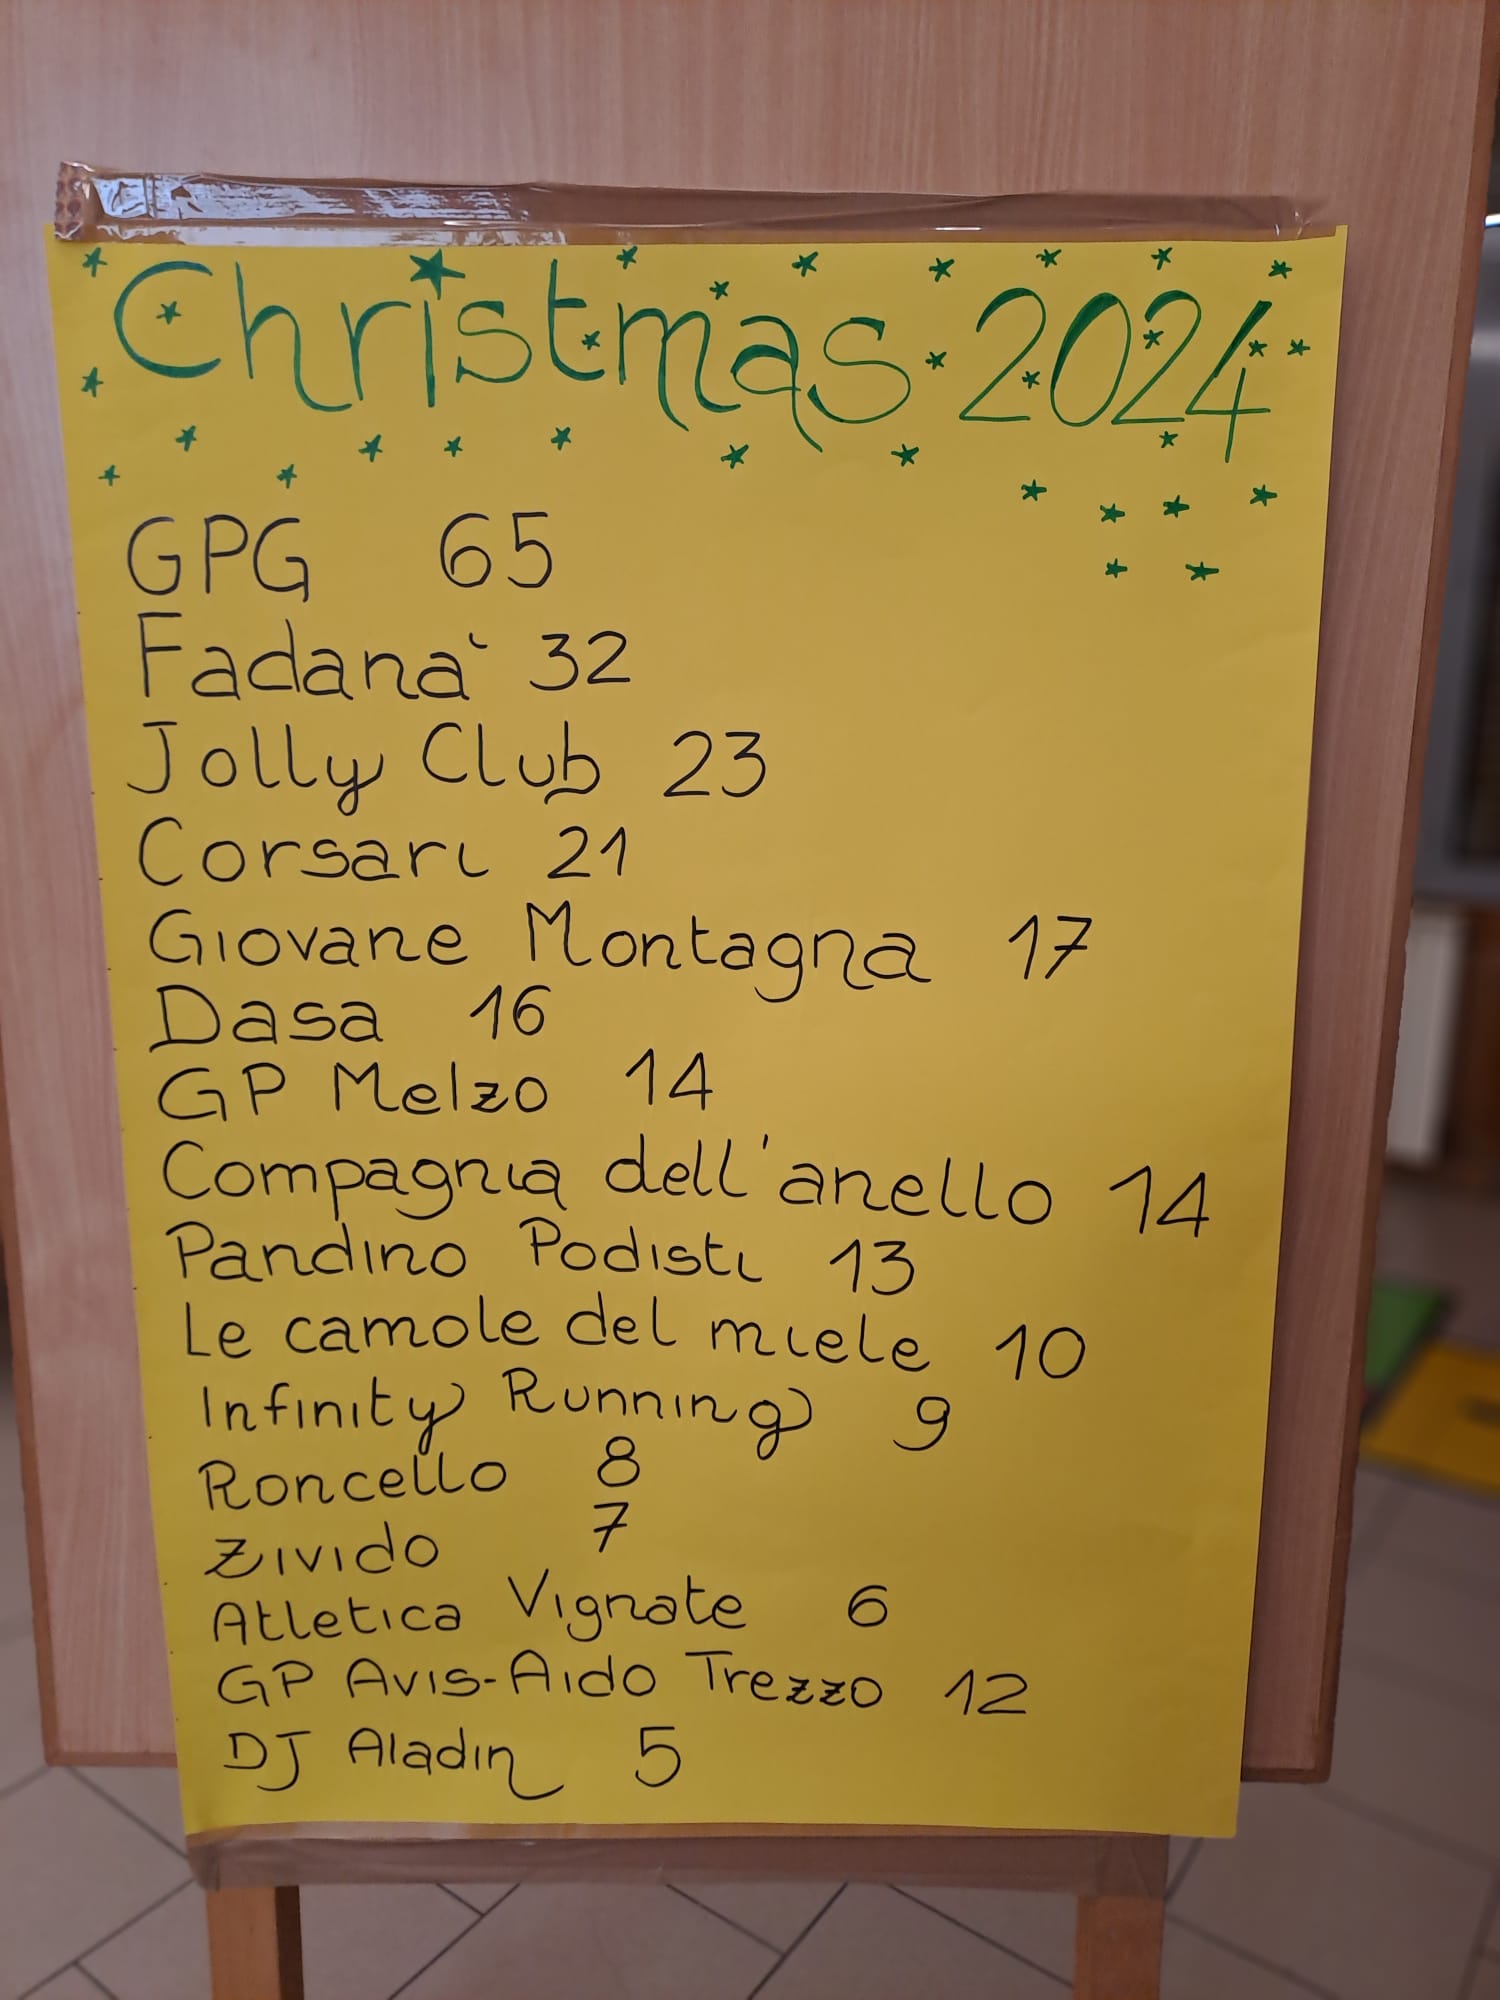 Christmas 2024
GPG 65
Fadana` 32
Jolly Club 23
Corsari 21
Giovane Montagna 17
Dasa 16
GP Melzo 14
Compagnia dell'anello 14
Pandino Podisti 13
Le camole del miele 10
Infinity Running 9
Roncello 8
Zivido 7
Atletica Vignate 6
GP Avis-Aido Trezzo 12
DJ Aladin 5